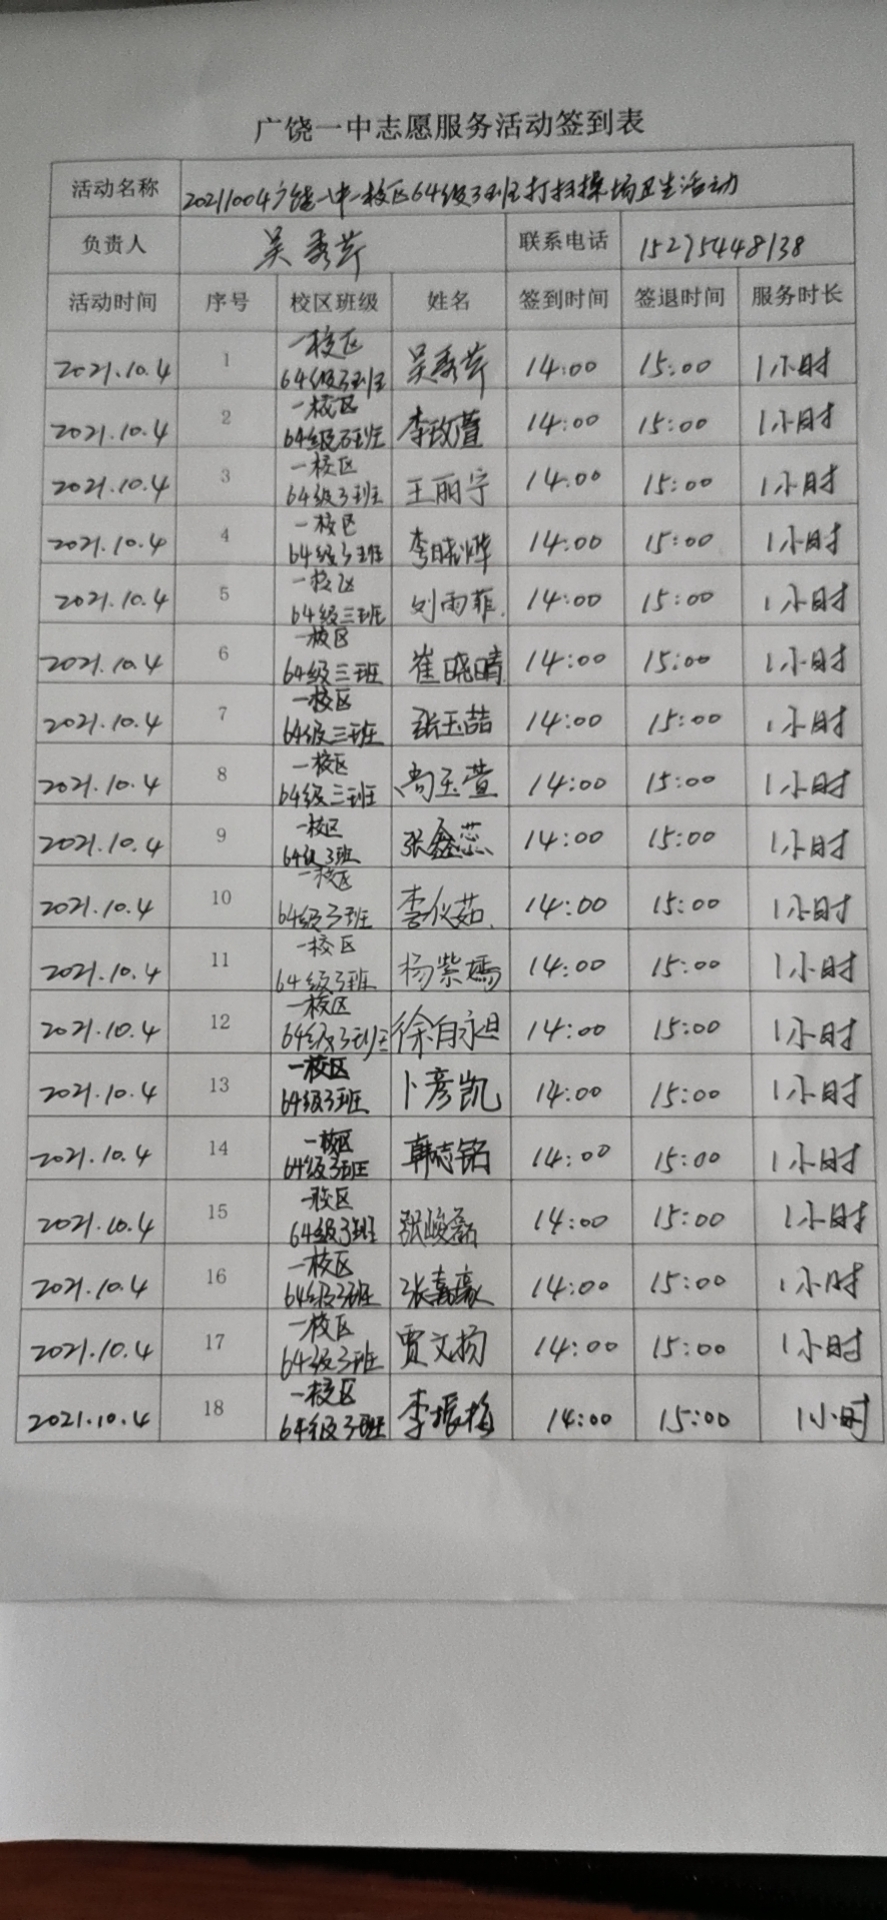 广饶一中志愿服务活动签到表
活动名称 20211004广饶一中一校区64级3班打扫操场卫生活动
负责人 吴秀芹 联系电话 15275448138
活动时间 序号 校区班级 姓名 签到时间 签退时间 服务时长
2021.10.4 1 一校区 64级3班 吴秀芹 14:00 15:00 1小时
2021.10.4 2 一校区 64级3班 李玫萱 14:00 15:00 1小时
2021.10.4 3 一校区 64级3班 王丽宁 14:00 15:00 1小时
2021.10.4 4 一校区 64级3班 李晓烨 14:00 15:00 1小时
2021.10.4 5 一校区 64级三班 刘雨菲. 14:00 15:00 1小时
2021.10.4 6 一校区 64级三班 崔晓晴 14:00 15:00 1小时
2021.10.4 7 一校区 64级三班 张玉喆 14:00 15:00 1小时
2021.10.4 8 一校区 64级三班 尚玉萱 14:00 15:00 1小时
2021.10.4 9 一校区 64级3班 张鑫蕊 14:00 15:00 1小时
2021.10.4 10 一校区 64级3班 李仪茹. 14:00 15:00 1小时
2021.10.4 11 一校区 64级3班 杨紫嫣 14:00 15:00 1小时
2021.10.4 12 一校区 64级3班 徐自永旦 14:00 15:00 1小时
2021.10.4 13 一校区 64级3班 卜彦凯 14:00 15:00 1小时
2021.10.4 14 一校区 64级3班 韩志铭 14:00 15:00 1小时
2021.10.4 15 一校区 64级3班 张峻磊 14:00 15:00 1小时
2021.10.4 16 一校区 64级3班 张嘉豪 14:00 15:00 1小时
2021.10.4 17 一校区 64级3班 贾文扬 14:00 15:00 1小时
2021.10.4 18 一校区 64级3班 李振梅 14:00 15:00 1小时